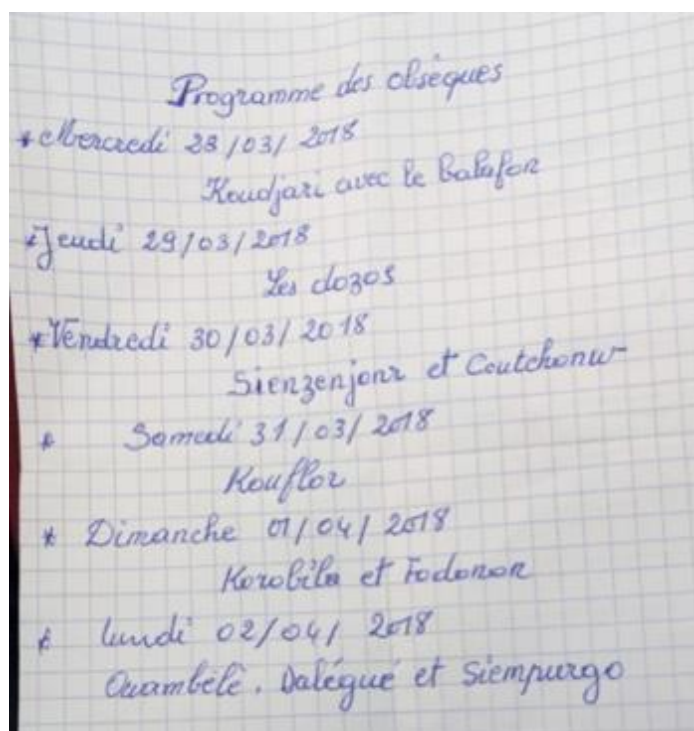 Programme des obsèques
* Mercredi 28/03/2018
Koudjari avec le balafon
* Jeudi 29/03/2018
Les dozos
* Vendredi 30/03/2018
Sienzenjonr et Coutchonw
* Samedi 31/03/2018
Kouflor
* Dimanche 01/04/2018
Korobila et Fodonon
* lundi 02/04/2018
Ouambélè. Dalégué et Siempurgo